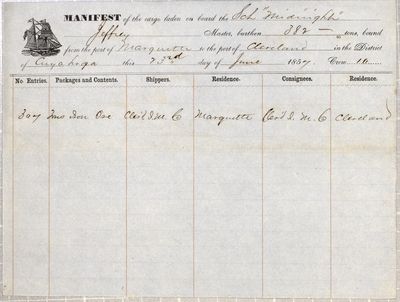 MANIFEST of the cargo laden on board the Sch "Midnight"
Jeffrey Master, burthen 382 — tons, bound
from the port of Marquette to the port of Cleveland in the District
of Cuyahoga this 23rd day of June 1857. Crew 10
No. Entries. Packages and Contents. Shippers. Residence. Consignees. Residence.
307 Tons Iron Ore Clev'd I. M. C Marquette Clev'd I. M. C Cleveland